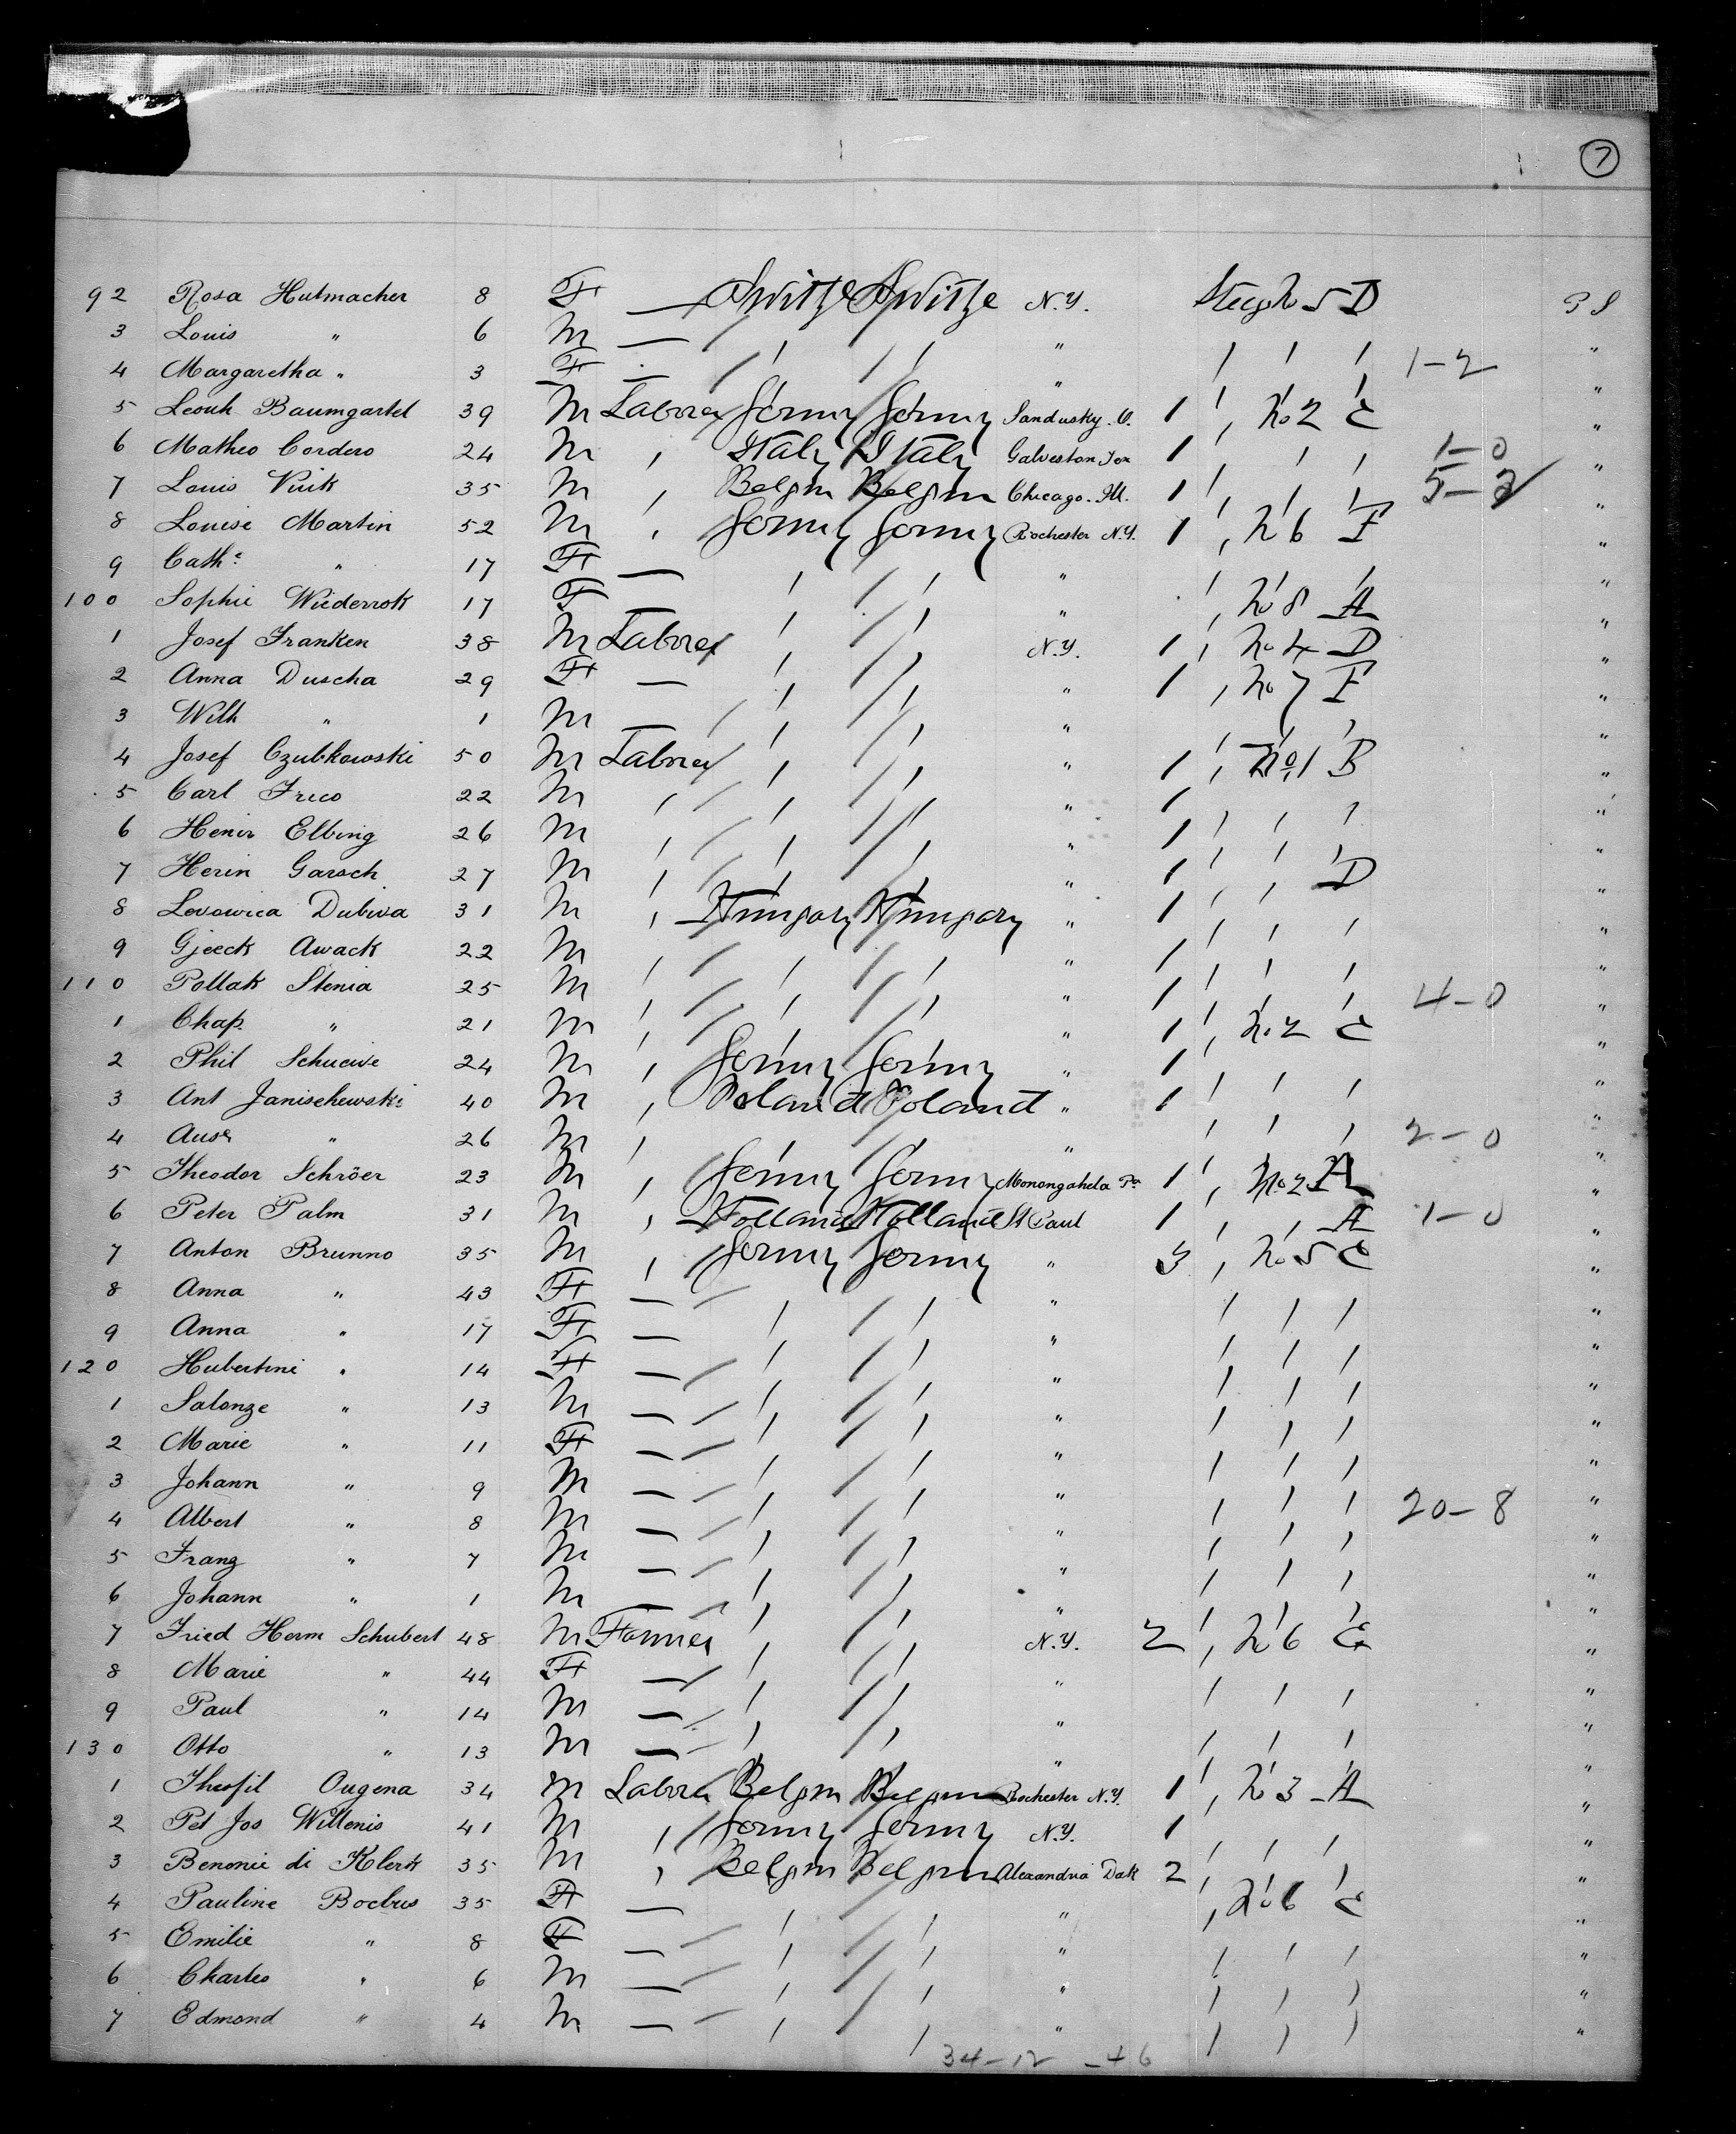 7
92 Rosa Hutmacher 8 F — Switze Switze N.Y. Steerg No 5 D P S
3 Louis " 6 M — ' ' " ' ' ' "
4 Margaretha " 3 F — ' ' " ' ' ' 1-2 "
5 Leonh Baumgartel 39 M Laborer Germy Germy Sandusky. O. 1 ' No 2 C "
6 Matheo Cordero 24 M ' Italy Italy Galveston Tex 1 ' ' ' 1-0 "
7 Louis Vuik 35 M ' Belgm Belgm Chicago. Ill. 1 ' ' ' 5-2 "
8 Louise Martin 52 M ' Germy Germy Rochester N.Y. 1 ' No 6 F "
9 Cathe " 17 F — ' ' " ' ' ' "
100 Sophie Wiederrok 17 F ' ' " ' No 8 A "
1 Josef Franken 38 M Laborer ' ' N.Y. 1 ' No 4 D "
2 Anna Duscha 29 F — ' ' " 1 ' No 7 F "
3 Wilh " 1 M — ' ' " ' ' ' "
4 Josef Czubkowski 50 M Laborer ' ' " 1 ' No 1 B "
5 Carl Frico 22 M ' ' ' " 1 ' ' ' "
6 Henir Elbing 26 M ' ' ' " 1 ' ' ' "
7 Herin Garsch 27 M ' ' ' " 1 ' ' D "
8 Lovowica Dubiva 31 M ' Hungary Hungary " 1 ' ' ' "
9 Gjeeck Awack 22 M ' ' ' " 1 ' ' ' "
110 Pollak Stenia 25 M ' ' ' " 1 ' ' ' 4-0 "
1 Chap. " 21 M ' ' ' " 1 ' No 2 C "
2 Phil Schucive 24 M ' Germy Germy " 1 ' ' ' "
3 Ant Janischewski 40 M ' Poland Poland " 1 ' ' ' "
4 " 26 M ' ' ' " ' ' ' 2-0 "
5 Theodor Schröer 23 M ' Germy Germy Monongahela Pa 1 ' No 2 A "
6 Peter Palm 31 M ' Holland Holland St Paul 1 ' ' A 1-0 "
7 Anton Brunno 35 M ' Germy Germy " 3 ' No 5 C "
8 Anna " 43 F — ' ' " ' ' ' "
9 Anna " 17 F — ' ' " ' ' ' "
120 Hubertine " 14 F — ' ' " ' ' ' "
1 Salonze " 13 M — ' ' " ' ' ' "
2 Marie " 11 F — ' ' " ' ' ' "
3 Johann " 9 M — ' ' " ' ' ' "
4 Albert " 8 M — ' ' " ' ' ' 20-8 "
5 Franz " 7 M — ' ' " ' ' ' "
6 Johann " 1 M — ' ' " ' ' ' "
7 Fried Herm Schubert 48 M Farmer ' ' N.Y. 2 ' No 6 C "
8 Marie " 44 F — ' ' " ' ' ' "
9 Paul " 14 M — ' ' " ' ' ' "
130 Otto " 13 M — ' ' " ' ' ' "
1 Theofil Ougena 34 M Laborer Belgm Belgm Rochester N.Y. 1 ' No 3 A "
2 Pet Jos Willenis 41 M ' Germy Germy N.Y. 1 ' ' ' "
3 Benonie di Klerk 35 M ' Belgm Belgm Alexandria Dak 2 ' ' ' "
4 Pauline Boebus 35 F — ' ' " ' No 6 C "
5 Emilie " 8 F — ' ' " ' ' ' "
6 Charles " 6 M — ' ' " ' ' ' "
7 Edmond " 4 M — ' ' " ' ' ' "
34-12 -46